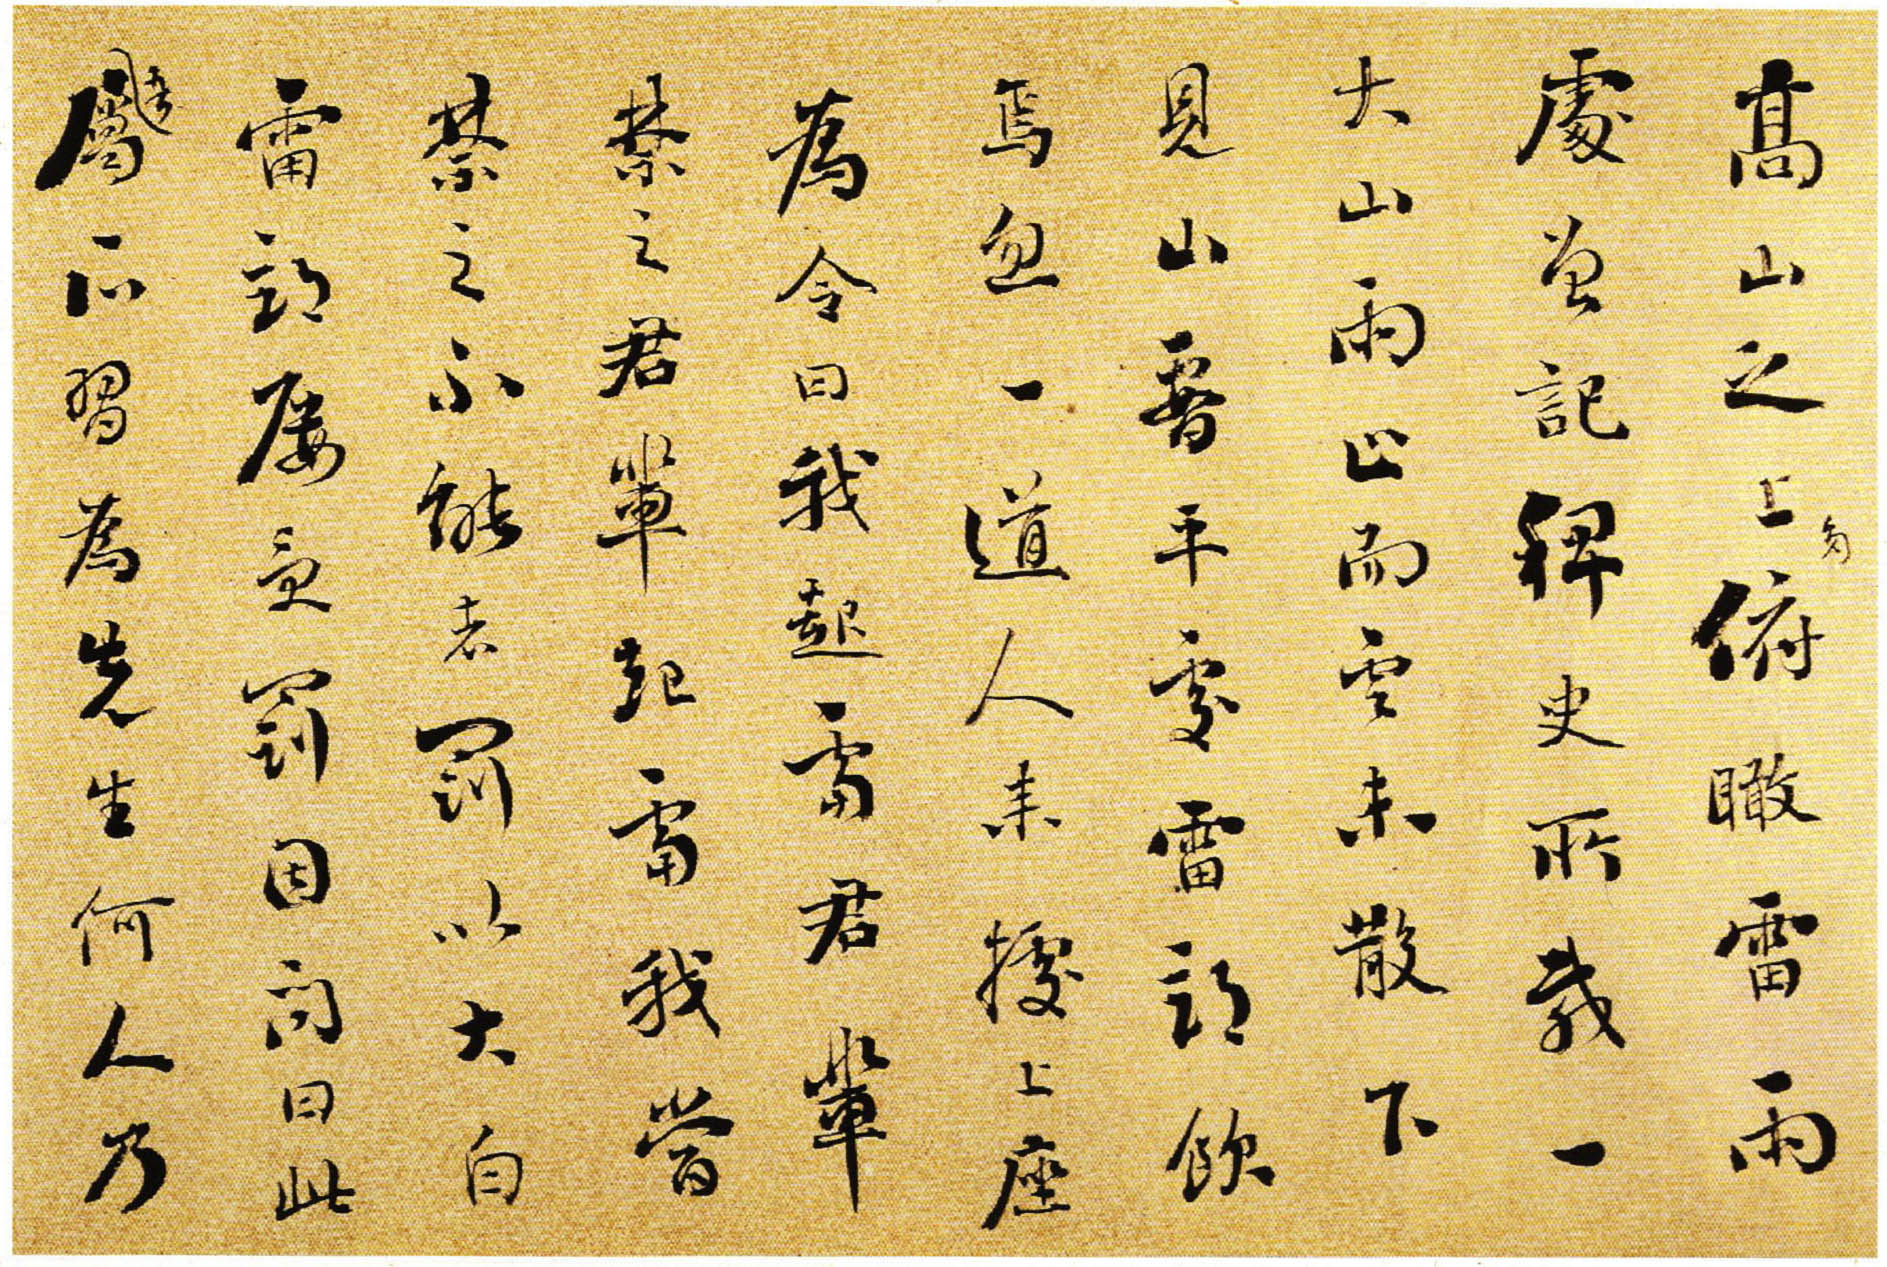 高山之上多俯瞰雷雨
處曾記稗史所載一
大山雨止而雲未散下
見山平處雷部飲
焉忽一道人來據上座
為令曰我起雷君輩
禁之君輩起雷我當
禁之不能者罰以大白
雷部屢負罰因問曰此
屬所習為先生何人乃